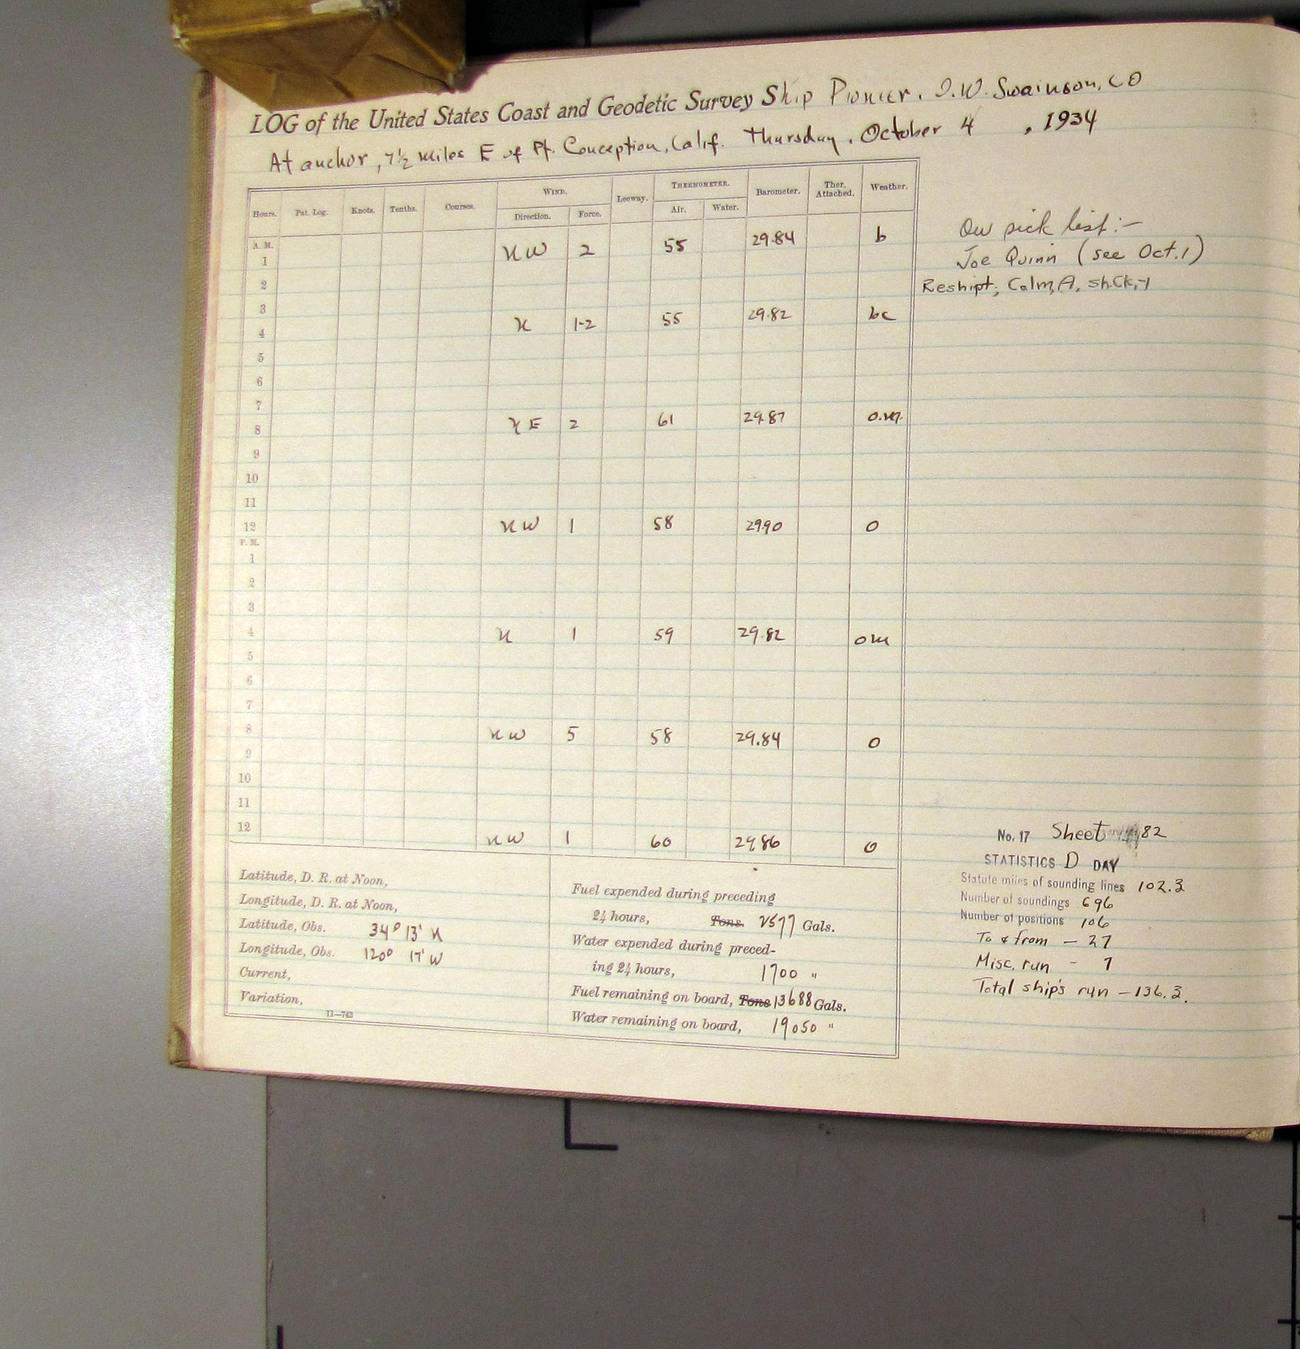 LOG of the United States Coast and Geodetic Survey Ship Pioneer, O.W. Swainson, CO
At anchor, 7½ miles E of Pt. Conception, Calif. Thursday, October 4, 1934
Hours. Pat. Log. Knots. Tenths. Courses. WIND. Direction. Force. Leeway. THERMOMETER. Air. Water. Barometer. Ther. Attached. Weather.
A. M.
1 NW 2 55 29.84 b
2
3
4 N 1-2 55 29.82 bc
5
6
7
8 NE 2 61 29.87 o.m.
9
10
11
12 NW 1 58 29.90 o
P. M.
1
2
3
4 N 1 59 29.82 om
5
6
7
8 NW 5 58 29.84 o
9
10
11
12 NW 1 60 29.86 o
On sick list:-
Joe Quinn (see Oct. 1)
Reshipt;
No. 17 Sheet 82
STATISTICS D DAY
Statute miles of sounding lines 102.3
Number of soundings 696
Number of positions 106
To & from - 27
Misc. run - 7
Total ship's run - 136.3.
Latitude, D. R. at Noon,
Longitude, D. R. at Noon,
Latitude, Obs. 34° 13' N
Longitude, Obs. 120° 17' W
Current,
Variation,
11—763
Fuel expended during preceding
24 hours, Tons. 2577 Gals.
Water expended during preced-
ing 24 hours, 1700 "
Fuel remaining on board, Tons 13688 Gals.
Water remaining on board, 19050 "